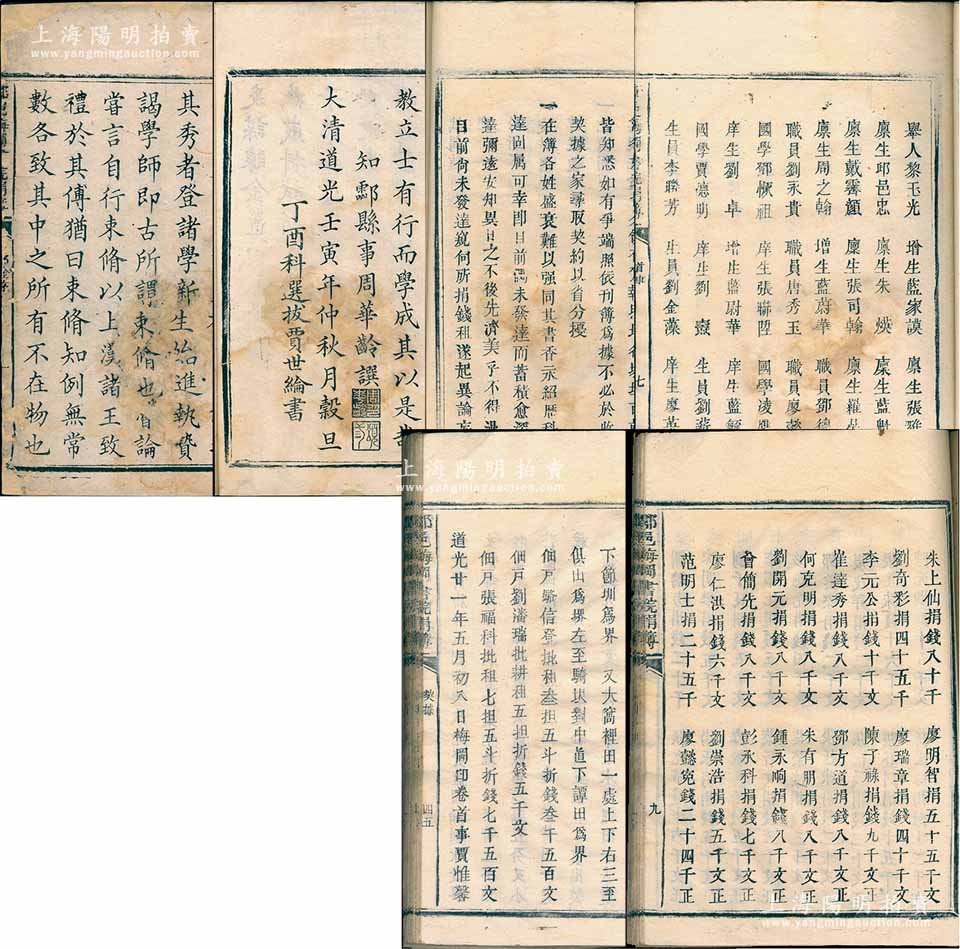 上海陽明拍賣
www.yangmingauction.com
其秀者登諸學新生始進執贄
謁學師即古所謂束脩也魯論
嘗言自行束脩以上漢諸王致
禮於其傅猶曰束脩知例無常
數各致其中之所有不在物也
教立士有行而學成其以是
知酃縣事周華齡譔
大清道光壬寅年仲秋月穀旦
丁酉科選拔賈世綸書
皆知悉如有爭端照依刊簿為據不必於
契據之家尋取契約以省分擾
一在簿各姓盛衰難以强同其書香永紹歷科
達固屬可幸即目前
未發達而蓄積愈深
達彌遠安知異日之不後先濟美乎不得
目前尚未發達說何所捐錢租遂起異論
舉人黎玉光 增生藍家謨 廩生張
廩生邱邑忠 廩生朱煐 廩生藍
廩生戴霽顏 廩生張司翰 廩生羅
廩生周之翰 增生藍蔚華 職員鄧德
職員劉永貴 職員唐秀玉 職員廖
國學鄧懷祖 庠生張聯陞 國學凌
庠生劉卓 增生藍尉華 庠生藍
國學賈德明 庠生劉嶽 生員劉
生員李聯芳 生員劉金藻 庠生廖
上海陽明拍賣
www.yangmingauction.com
下節圳為界 又大窩裡田一處上下右三至
俱山為界左至騎
對中直下譚田為界
佃戶駱信登批租叁担五斗折錢叁千五百文
佃戶劉潘瑞批耕租五担折錢五千文
佃戶張福科批租七担五斗折錢七千五百文
道光廿一年五月初八日梅岡印卷首事賈惟馨
酃邑梅岡書院捐簿
契據
四五
朱上仙捐錢八十千 廖明智捐五十五千文
劉奇彩捐四十五千 廖瑞章捐錢四十千文
李元公捐錢十千文 陳子祿捐錢九千文
崔達秀捐錢八千文 鄧方道捐錢八千文正
何克明捐錢八千文 朱有朋捐錢八千文正
劉開元捐錢八千文 鍾永晌捐錢八千文正
曾簡先捐錢八千文 彭承科捐錢七千文正
廖仁洪捐錢六千文 劉崇浩捐錢五千文正
范明士捐二十五千 廖懿宛錢二十四千正
酃邑梅岡書院捐簿
九
上海陽明拍賣
www.yangmingauction.com